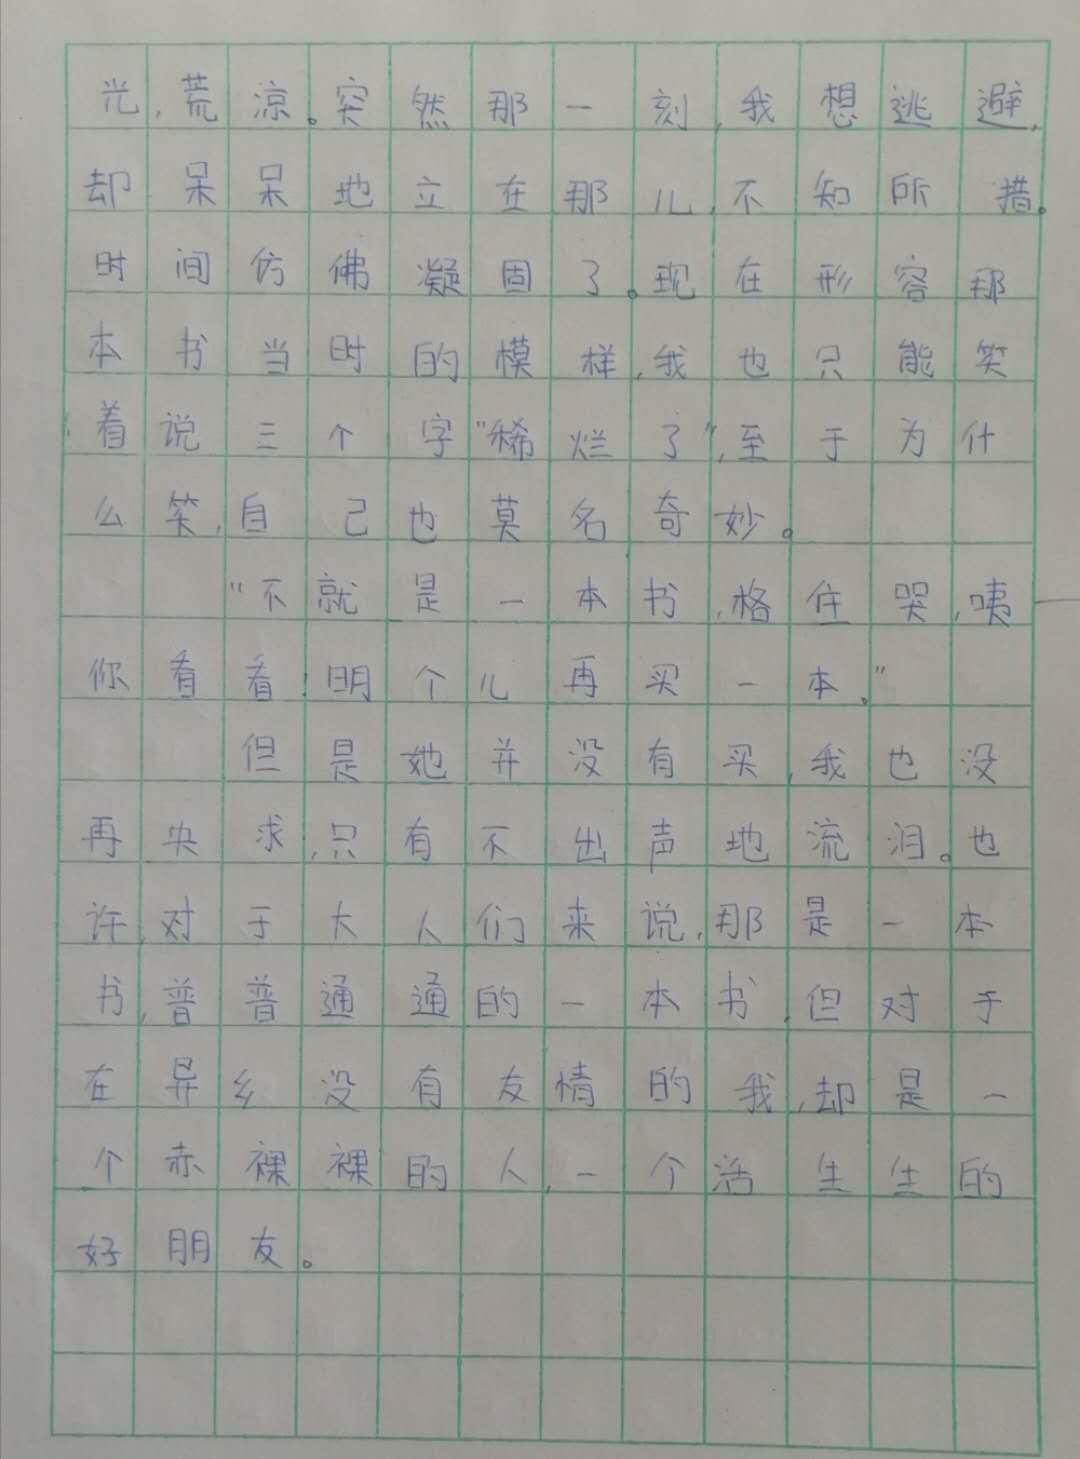 光,荒凉。突然那一刻,我想逃避,
却呆呆地立在那儿,不知所措。
时间仿佛凝固了。现在形容那
本书当时的模样,我也只能笑
着说三个字"稀烂了",至于为什
么笑,自己也莫名奇妙。
"不就是一本书,格住哭,咦
你看看!明个儿再买一本。"
但是她并没有买,我也没
再央求,只有不出声地流泪。也
许,对于大人们来说,那是一本
书,普普通通的一本书,但对于
在异乡没有友情的我,却是一
个赤裸裸的人,一个活生生的
好朋友。